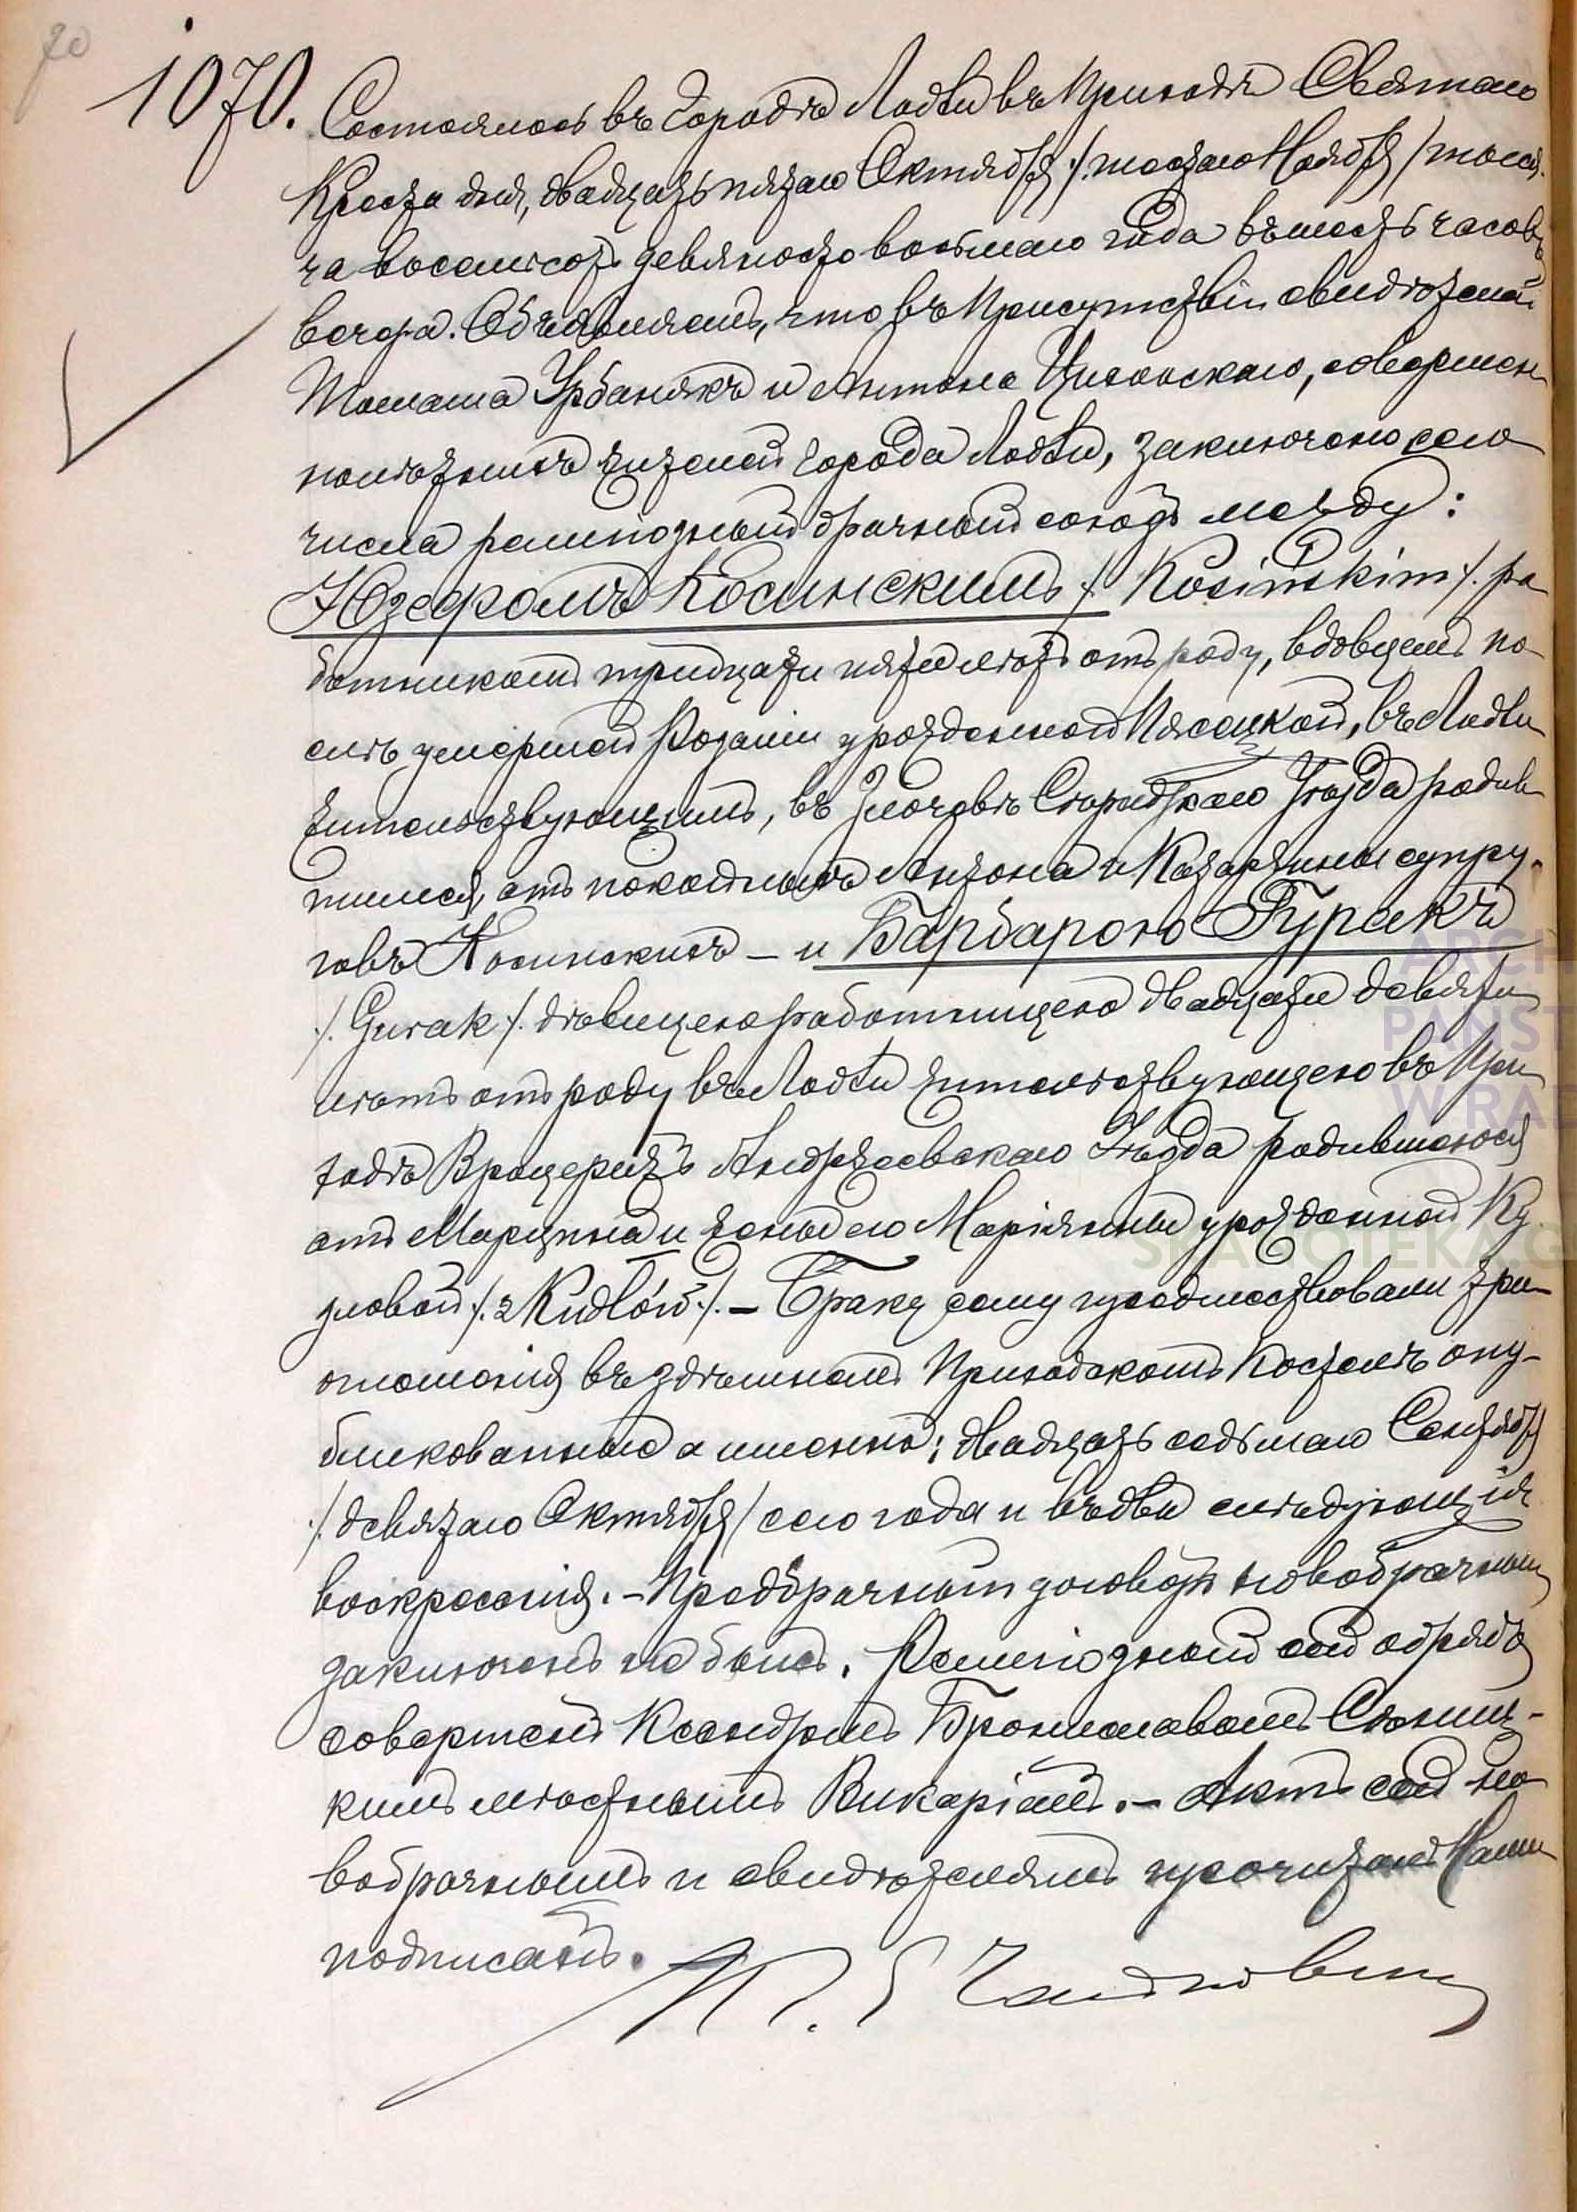 20
1070. Состоялось въ городѣ Лодзи въ Приходѣ Святаго
Креста дня, двадцать пятаго Октября /. шестаго Ноября / тыся-
ча восемьсотъ девяносто восьмаго года въ шесть часовъ
вечера. Объявляемъ, что въ присутствіи свидѣтелей
Томаша Урбанякъ и Антона совершен-
нолѣтнихъ жителей города Лодзи, заключено сего
числа религіозный брачный союзъ между:
Юзефомъ Косинскимъ /. Kosińskim /. ра-
ботникомъ тридцати пяти лѣтъ отъ роду, вдовцемъ по-
слѣ умершей Розаліи урожденной Пясецкой, въ Лодзи
жительствующимъ, въ Злочевѣ Сѣрадзкаго Уѣзда родив-
шимся, отъ покойныхъ Антона и Катаржины супру-
говъ Косинскихъ – и Барбарою Гуракъ
/. Gurak /. дѣвицею работницею двадцати девяти
лѣтъ отъ роду въ Лодзи жительствующею въ При-
ходѣ Вроцерижъ Андржеевскаго Уѣзда родившеюся
отъ Марцина и жены его Маріянны урожденной Ку-
дловой /. z Kudłów /. – Браку сему предшествовали три
оглашенія въ здѣшнемъ Приходскомъ Костелѣ опу-
бликованные а именно: двадцать седьмаго Сентября
/. девятаго Октября / сего года и въ два слѣдующія
воскресенія. – Предбрачный договоръ новобрачными
заключенъ не былъ. Религіозный сей обрядъ
совершенъ Ксендзомъ Брониславомъ Сѣниц-
кимъ мѣстнымъ Викаріемъ. – Актъ сей но-
вобрачнымъ и свидѣтелямъ прочитанъ Нами
подписанъ.
ARCH
PAŃST
W RAD
SKANOTEKA.G